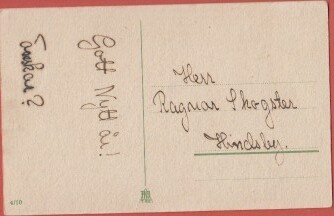 Gott Nytt år!
önskar?
Herr
Ragnar Skogster
Hindsby.
4/10